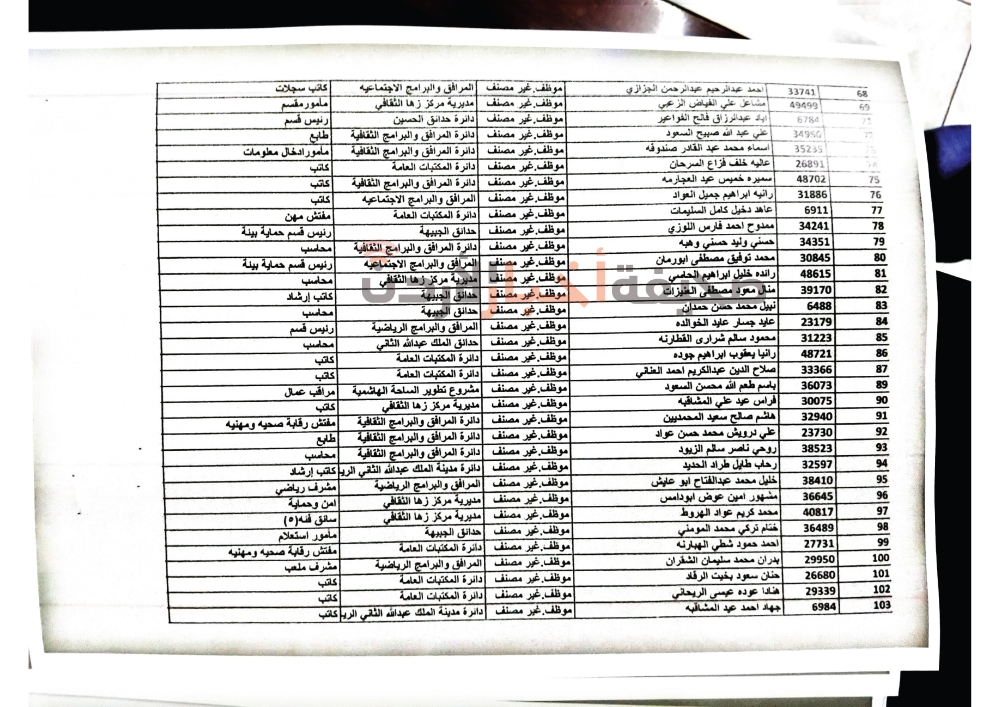 68 33741 احمد عبدالرحيم عبدالرحمن الجزازي موظف.غير مصنف المرافق والبرامج الاجتماعيه كاتب سجلات
69 49499 مشاعل علي الفياض الزعبي موظف.غير مصنف مديرية مركز زها الثقافي مأمورمقسم
6784 اياد عبدالرزاق فالح الفواعير موظف.غير مصنف دائرة حدائق الحسين رئيس قسم
34950 علي عبد الله صبيح السعود موظف.غير مصنف دائرة المرافق والبرامج الثقافية طابع
35235 اسماء محمد عبد القادر صندوقه موظف.غير مصنف دائرة المرافق والبرامج الثقافية مأمورادخال معلومات
26891 عاليه خلف فزاع السرحان موظف.غير مصنف دائرة المكتبات العامة كاتب
75 48702 سميره خميس عيد العجارمه موظف.غير مصنف دائرة المرافق والبرامج الثقافية كاتب
76 31886 رانيه ابراهيم جميل العواد موظف.غير مصنف المرافق والبرامج الاجتماعيه كاتب
77 6911 عاهد دخيل كامل السليمات موظف.غير مصنف دائرة المكتبات العامة مفتش مهن
78 34241 ممدوح احمد فارس اللوزي موظف.غير مصنف حدائق الجبيهة رئيس قسم حماية بيئة
79 34351 حسني وليد حسني وهبه موظف.غير مصنف دائرة المرافق والبرامج الثقافية محاسب
80 30845 محمد توفيق مصطفى ابورمان موظف.غير مصنف المرافق والبرامج الاجتماعيه رئيس قسم حماية بيئة
81 48615 رانده خليل ابراهيم الحاسي موظف.غير مصنف مديرية مركز زها الثقافي محاسب
82 39170 منال معود مصطفى العنيزات موظف.غير مصنف حدائق الجبيهة كاتب إرشاد
83 6488 نبيل محمد حسن حمدان موظف.غير مصنف حدائق الجبيهة محاسب
84 23179 عايد جسار عايد الخوالده موظف.غير مصنف المرافق والبرامج الرياضية رئيس قسم
85 31223 محمود سالم شراري القطارنه موظف.غير مصنف حدائق الملك عبدالله الثاني محاسب
86 48721 رانيا يعقوب ابراهيم جوده موظف.غير مصنف دائرة المكتبات العامة كاتب
87 33366 صلاح الدين عبدالكريم احمد العناتي موظف.غير مصنف دائرة المكتبات العامة كاتب
89 36073 باسم طعم الله محسن السعود موظف.غير مصنف مشروع تطوير الساحة الهاشمية مراقب عمال
90 30075 فراس عيد علي المشاقبه موظف.غير مصنف مديرية مركز زها الثقافي كاتب
91 32940 هاشم صالح سعيد المحمديين موظف.غير مصنف دائرة المرافق والبرامج الثقافية مفتش رقابة صحيه ومهنيه
92 23730 علي درويش محمد حسن عواد موظف.غير مصنف دائرة المرافق والبرامج الثقافية طابع
93 38523 روحي ناصر سالم الزيود موظف.غير مصنف دائرة المرافق والبرامج الثقافية محاسب
94 32597 رحاب طايل طراد الحديد موظف.غير مصنف دائرة مدينة الملك عبدالله الثاني الري كاتب إرشاد
95 38410 خليل محمد عبدالفتاح ابو عايش موظف.غير مصنف المرافق والبرامج الرياضية مشرف رياضي
96 36645 مشهور امين عوض ابودامس موظف.غير مصنف مديرية مركز زها الثقافي امن وحماية
97 40817 محمد كريم عواد الهروط موظف.غير مصنف مديرية مركز زها الثقافي سائق فئه(٥)
98 36489 ختام تركي محمد المومني موظف.غير مصنف حدائق الجبيهة مأمور استعلام
99 27731 احمد حمود شطي الهبارنه موظف.غير مصنف دائرة المكتبات العامة مفتش رقابة صحيه ومهنيه
100 29950 بدران محمد سليمان الشقران موظف.غير مصنف المرافق والبرامج الرياضية مشرف ملعب
101 26680 حنان سعود بخيت الرقاد موظف.غير مصنف دائرة المكتبات العامة كاتب
102 29339 هنادا عوده عيسى الريحاني موظف.غير مصنف دائرة المكتبات العامة كاتب
103 6984 جهاد احمد عيد المشاقبه موظف.غير مصنف دائرة مدينة الملك عبدالله الثاني الري كاتب
صحيفة أخبار الأردن